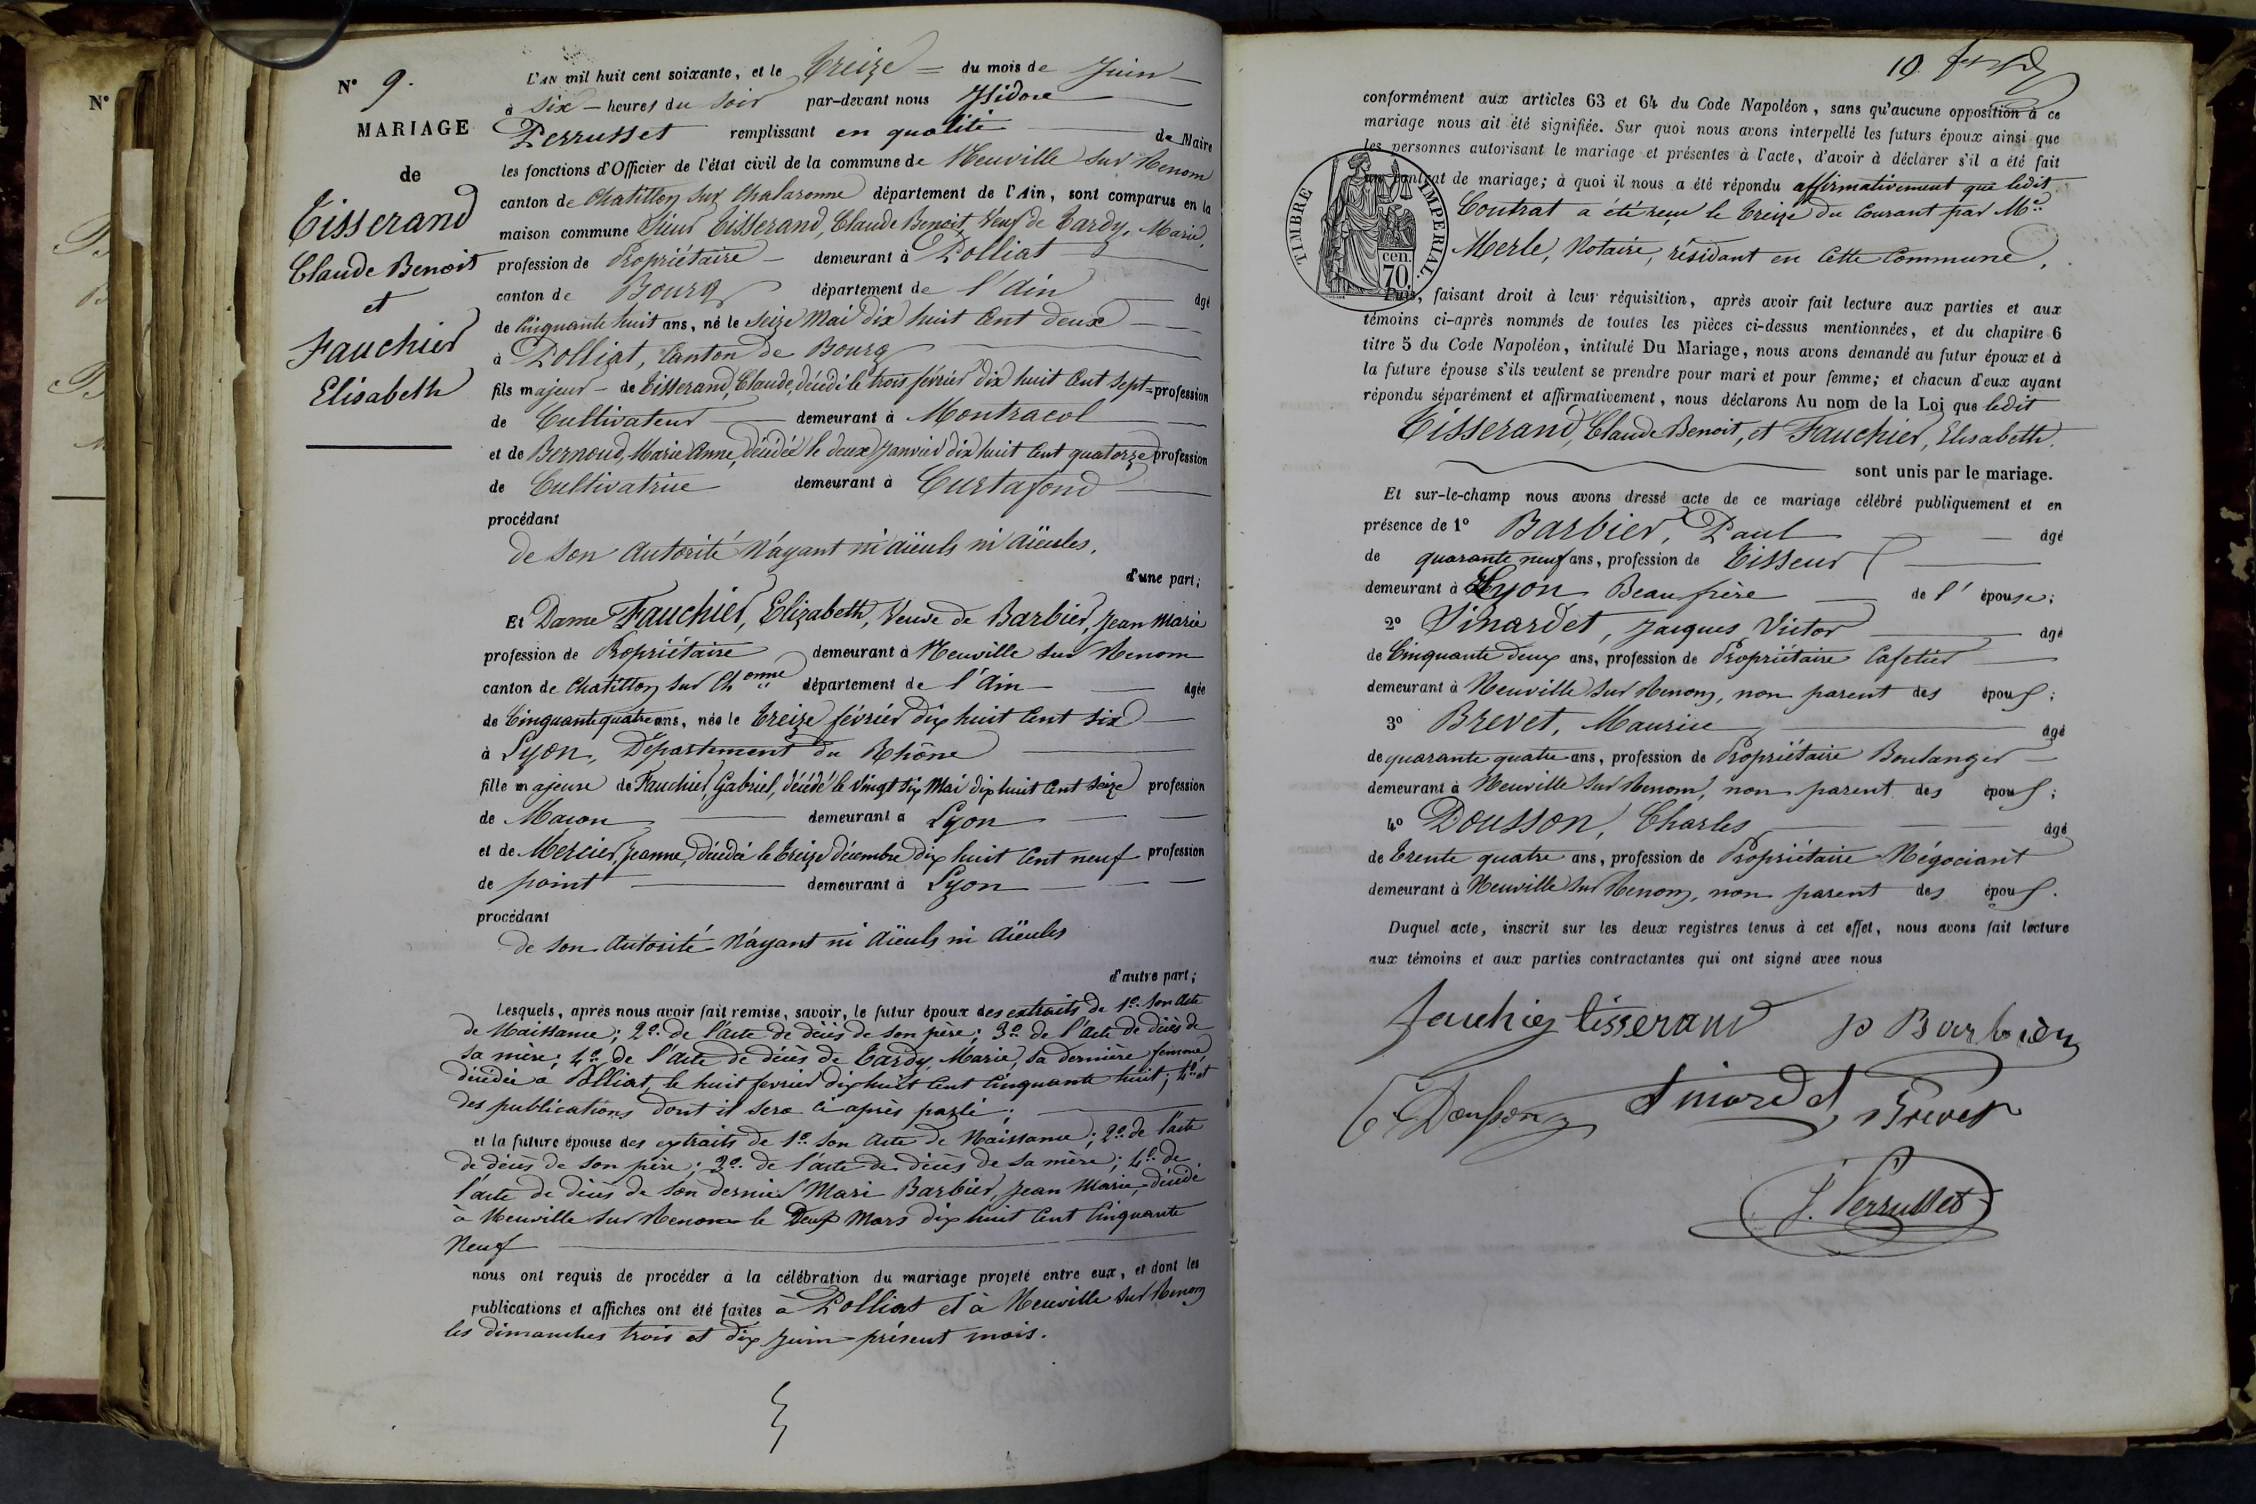 N°
N° 9.
MARIAGE
de
Tisserand
Claude Benoit
et
Fauchier
Elisabeth
L'AN mil huit cent soixante, et le Treize = du mois de Juin
à six heures du soir par-devant nous Isidore
Perrusset remplissant en qualité de Maire
les fonctions d'Officier de l'état civil de la commune de Neuville sur Renom
canton de Chatillon sur Chalaronne département de l'Ain, sont comparus en la
maison commune Sieur Tisserand, Claude Benoit, Veuf de Tardy, Marie,
profession de Propriétaire demeurant à Polliat
canton de Bourg département de l'Ain âgé
de Cinquante huit ans, né le seize Mai dix huit Cent deux
à Polliat, Canton de Bourg
fils majeur de Tisserand, Claude, décédé le trois février dix huit Cent sept = profession
de Cultivateur demeurant à Montracol
et de Bernoud, Marie Anne, décédée le deux Janvier dix huit Cent quatorze profession
de Cultivatrice demeurant à Curtafond
procédant
de son autorité N'ayant ni aïeuls ni aïeules,
d'une part;
Et Dame Fauchier, Elizabeth, Veuve de Barbier, Jean Marie
profession de Propriétaire demeurant à Neuville sur Renom
canton de Chatillon sur Chonne département de l'Ain âgée
de Cinquante quatre ans, née le treize février dix huit Cent six
à Lyon, Département du Rhône
fille majeure de Fauchier, Gabriel, décédé le Vingt six Mai dix huit Cent seize profession
de Macon demeurant à Lyon
et de Mercier, Jeanne, décédée le treize décembre dix huit Cent neuf profession
de point demeurant à Lyon
procédant
de son autorité N'ayant ni aïeuls ni aïeules
d'autre part;
Lesquels, après nous avoir fait remise, savoir, le futur époux des extraits de 1° son acte
de Naissance; 2° de l'acte de décès de son père; 3° de l'acte de décès de
sa mère; 4° de l'acte de décès de Tardy, Marie, sa dernière femme
décédée à Polliat, le huit fevrier dix huit Cent Cinquante huit; 4° et
des publications dont il sera ci après parlé;
et la future épouse des extraits de 1° son acte de Naissance; 2° de l'acte
de décès de son père; 3° de l'acte de décès de sa mère; 4° de
l'acte de décès de son dernier Mari Barbier, Jean Marie, décédé
à Neuville sur Renom le Deux Mars dix huit Cent Cinquante
Neuf
nous ont requis de procéder à la célébration du mariage projeté entre eux, et dont les
publications et affiches ont été faites à Polliat et à Neuville sur Renom
les dimanches trois et dix Juin présent mois.
19
conformément aux articles 63 et 64 du Code Napoléon, sans qu'aucune opposition à ce
mariage nous ait été signifiée. Sur quoi nous avons interpellé les futurs époux ainsi que
les personnes autorisant le mariage et présentes à l'acte, d'avoir à déclarer s'il a été fait
un contrat de mariage; à quoi il nous a été répondu affirmativement que ledit
Contrat a été reçu le treize du Courant par Me
Merle, Notaire, résidant en Cette Commune,
TIMBRE IMPERIAL.
cen.
70
Puis, faisant droit à leur réquisition, après avoir fait lecture aux parties et aux
témoins ci-après nommés de toutes les pièces ci-dessus mentionnées, et du chapitre 6
titre 5 du Code Napoléon, intitulé Du Mariage, nous avons demandé au futur époux et à
la future épouse s'ils veulent se prendre pour mari et pour femme; et chacun d'eux ayant
répondu séparément et affirmativement, nous déclarons Au nom de la Loi que ledit
Tisserand, Claude Benoit, et Fauchier, Elisabeth.
sont unis par le mariage.
Et sur-le-champ nous avons dressé acte de ce mariage célébré publiquement et en
présence de 1° Barbier, Paul âgé
de quarante neuf ans, profession de Tisseur
demeurant à Lyon Beau frère de l' épouse;
2° Sinardet, Jacques Victor âgé
de Cinquante deux ans, profession de Propriétaire Cafetier
demeurant à Neuville sur Renom, non parent des époux;
3° Brevet, Maurice âgé
de quarante quatre ans, profession de Propriétaire Boulanger
demeurant à Neuville sur Renom, non parent des époux;
4° Dousson, Charles âgé
de trente quatre ans, profession de Propriétaire Négociant
demeurant à Neuville sur Renom, non parent des époux.
Duquel acte, inscrit sur les deux registres tenus à cet effet, nous avons fait lecture
aux témoins et aux parties contractantes qui ont signé avec nous
fauchier tisserand p Barbier
C. Dousson Sinardet Brevet
J. Perrusset